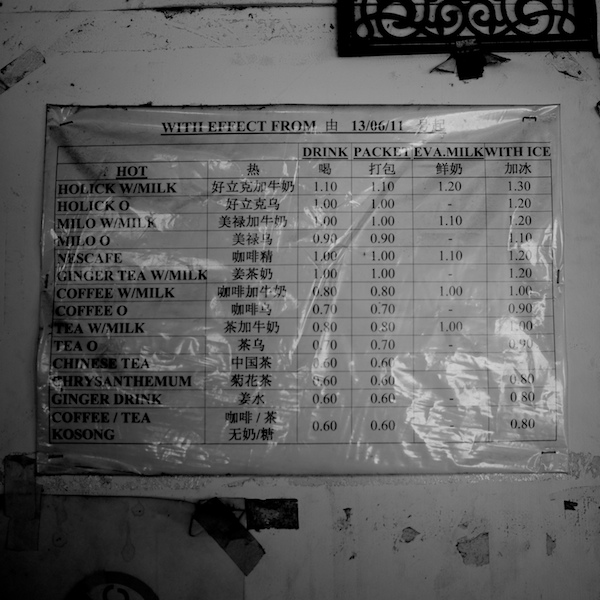 WITH EFFECT FROM 由 13/06/11 号起
DRINK PACKET EVA.MILK WITH ICE
HOT 热 喝 打包 鲜奶 加冰
HOLICK W/MILK 好立克加牛奶 1.10 1.10 1.20 1.30
HOLICK O 好立克乌 1.00 1.00 - 1.20
MILO W/MILK 美禄加牛奶 1.00 1.00 1.10 1.20
MILO O 美禄乌 0.90 0.90 - 1.10
NESCAFE 咖啡精 1.00 1.00 1.10 1.20
GINGER TEA W/MILK 姜茶奶 1.00 1.00 - 1.20
COFFEE W/MILK 咖啡加牛奶 0.80 0.80 1.00 1.00
COFFEE O 咖啡乌 0.70 0.70 - 0.90
TEA W/MILK 茶加牛奶 0.80 0.80 1.00 1.00
TEA O 茶乌 0.70 0.70 - 0.90
CHINESE TEA 中国茶 0.60 0.60
CHRYSANTHEMUM 菊花茶 0.60 0.60 0.80
GINGER DRINK 姜水 0.60 0.60 - 0.80
COFFEE / TEA 咖啡 / 茶 0.60 0.60 - 0.80
KOSONG 无奶/糖